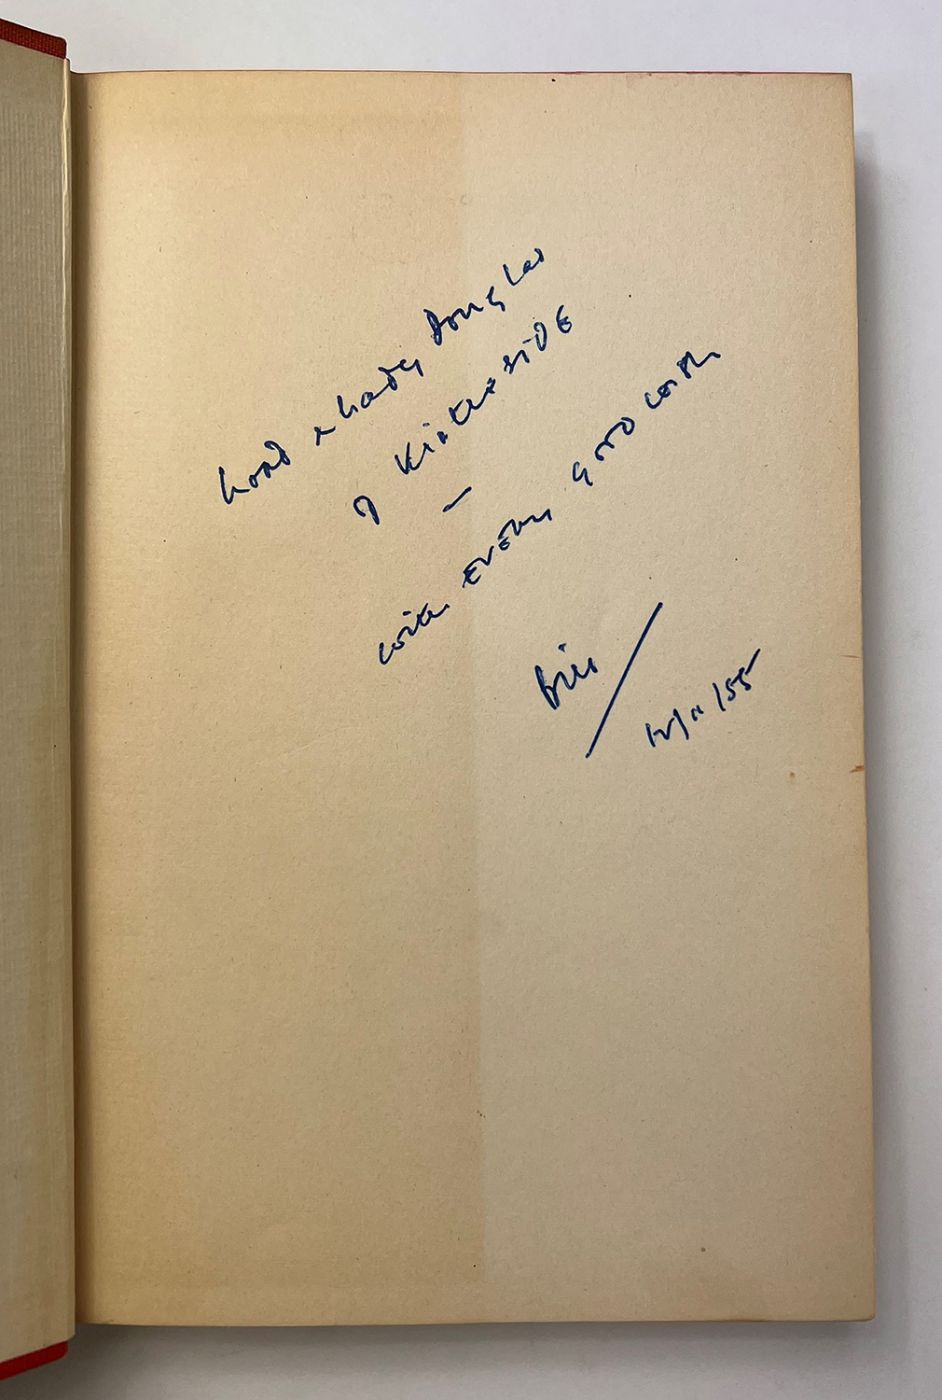 Lord & Lady Douglas
of Kirtleside
—
with every good wish
Bill
12/11/55